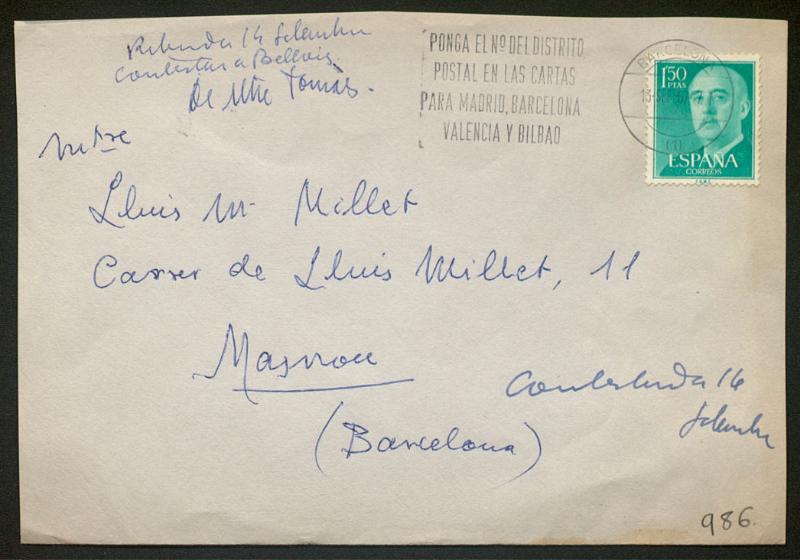 Rebuda 14 Setembre
Contestar a Bellvís
De Mtre Tomàs.
PONGA EL Nº DEL DISTRITO
POSTAL EN LAS CARTAS
PARA MADRID, BARCELONA
VALENCIA Y BILBAO
BARCELONA
(1)
1'50
PTAS
ESPAÑA
CORREOS
Mtre
Lluis Mª Millet
Carrer de Lluis Millet, 11
Masnou
(Barcelona)
Contestada 14
Setembre
986.